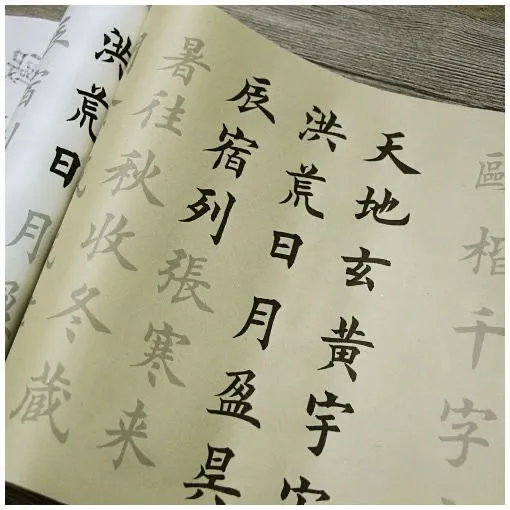 歐楷千字
天地玄黄宇宙
洪荒日月盈昃
辰宿列張寒来
暑往秋收冬藏
洪荒日月盈
宿列